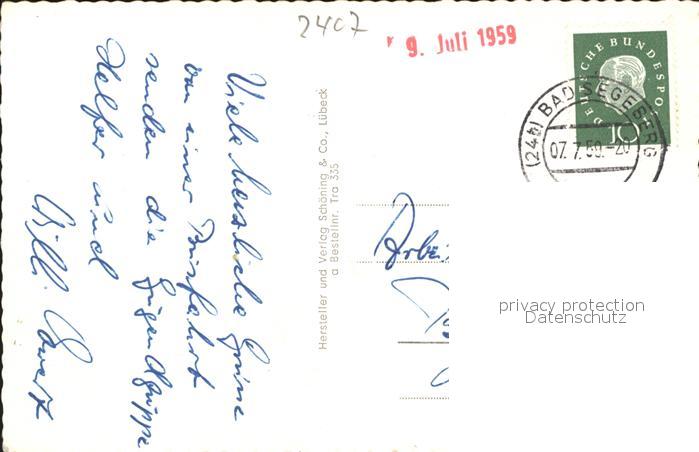 2407
9. Juli 1959
DEUTSCHE BUNDESPO
10
(24b) BAD SEGEBERG
07.7.59.-20
Viele herzliche Grüsse
von einer Busfahrt
senden die Jugendgruppe
Helfer und
Willi
Hersteller und Verlag Schöning & Co., Lübeck
a Bestellnr. Tra 335
Arbei
privacy protection
Datenschutz